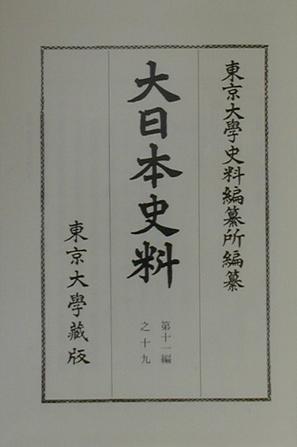 東京大學史料編纂所編纂
大日本史料
第十一編
之十九
東京大學藏版